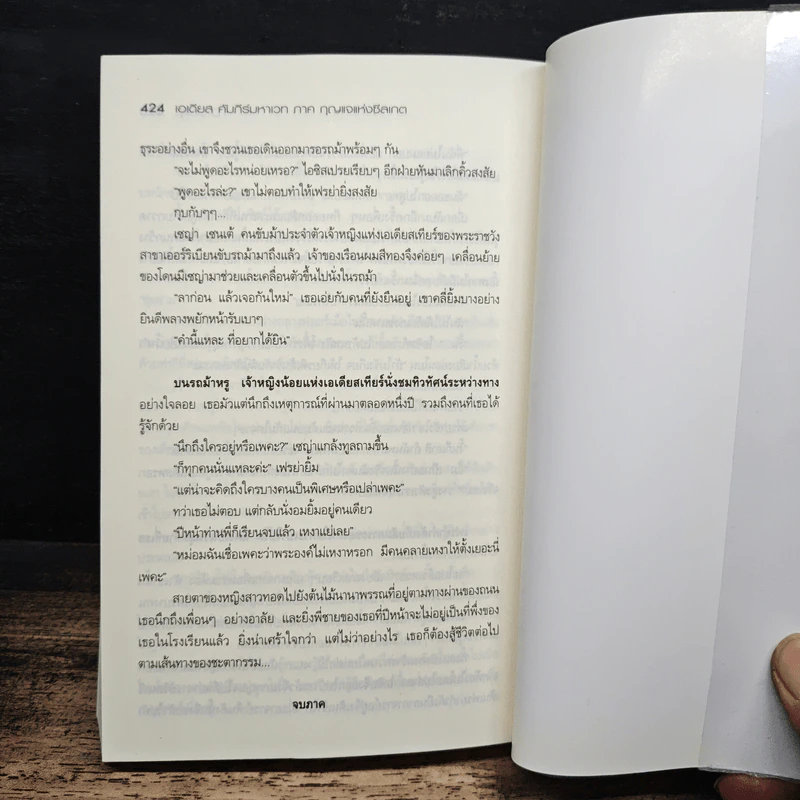 424 เอเดียส คัมภีร์มหาเวท ภาค กุญแจแห่งซิลเกต
ธุระอย่างอื่น เขาจึงชวนเธอเดินออกมารอรถม้าพร้อมๆ กัน
"จะไม่พูดอะไรหน่อยเหรอ?" ไอซิสเปรยเรียบๆ อีกฝ่ายหันมาเลิกคิ้วสงสัย
"พูดอะไรล่ะ?" เขาไม่ตอบทำให้เฟรย่ายิ่งสงสัย
กุบกับๆๆ...
เซญ่า เซนเต้ คนขับม้าประจำตัวเจ้าหญิงแห่งเอเดียสเทียร์ของพระราชวัง
สาขาเออร์ริเบียนขับรถม้ามาถึงแล้ว เจ้าของเรือนผมสีทองจึงค่อยๆ เคลื่อนย้าย
ของโดนมีเซญ่ามาช่วยและเคลื่อนตัวขึ้นไปนั่งในรถม้า
"ลาก่อน แล้วเจอกันใหม่" เธอเอ่ยกับคนที่ยังยืนอยู่ เขาคลี่ยิ้มบางอย่าง
ยินดีพลางพยักหน้ารับเบาๆ
"คำนี้แหละ ที่อยากได้ยิน"
บนรถม้าหรู เจ้าหญิงน้อยแห่งเอเดียสเทียร์นั่งชมทิวทัศน์ระหว่างทาง
อย่างใจลอย เธอมัวแต่นึกถึงเหตุการณ์ที่ผ่านมาตลอดหนึ่งปี รวมถึงคนที่เธอได้
รู้จักด้วย
"นึกถึงใครอยู่หรือเพคะ?" เซญ่าแกล้งทูลถามขึ้น
"ก็ทุกคนนั่นแหละค่ะ" เฟรย่ายิ้ม
"แต่น่าจะคิดถึงใครบางคนเป็นพิเศษหรือเปล่าเพคะ"
ทว่าเธอไม่ตอบ แต่กลับนั่งอมยิ้มอยู่คนเดียว
"ปีหน้าท่านพี่ก็เรียนจบแล้ว เหงาแย่เลย"
"หม่อมฉันเชื่อเพคะว่าพระองค์ไม่เหงาหรอก มีคนคลายเหงาให้ตั้งเยอะนี่
เพคะ"
สายตาของหญิงสาวทอดไปยังต้นไม้นานาพรรณที่อยู่ตามทางผ่านของถนน
เธอนึกถึงเพื่อนๆ อย่างอาลัย และยิ่งพี่ชายของเธอที่ปีหน้าจะไม่อยู่เป็นที่พึ่งของ
เธอในโรงเรียนแล้ว ยิ่งน่าเศร้าใจกว่า แต่ไม่ว่าอย่างไร เธอก็ต้องสู้ชีวิตต่อไป
ตามเส้นทางของชะตากรรม...
จบภาค